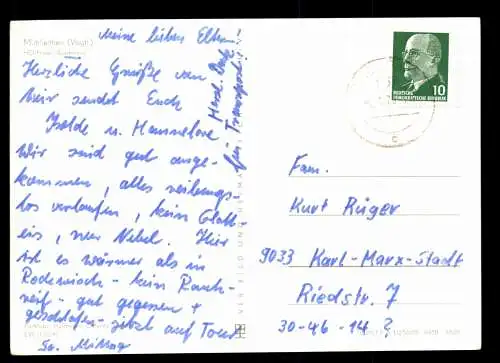 Mühlleithen (Vogtl.)
meine lieben Eltern
Herzliche Grüße von
hier sendet Euch
Isolde u. Hannelore
Wir sind gut ange-
kommen, alles reibungs-
los verlaufen, kein Glatt-
eis, nur Nebel. Hier
ist es wärmer als in
Rodewisch - kein Rauh-
reif - gut gegessen +
geschlafen - jetzt auf Tour
So. Mittag
Herzl. Dank
für Transport
DEUTSCHE
DEMOKRATISCHE REPUBLIK
10
Fam.
Kurt Rüger
9033 Karl-Marx-Stadt
Riedstr. 7
30-46-14?